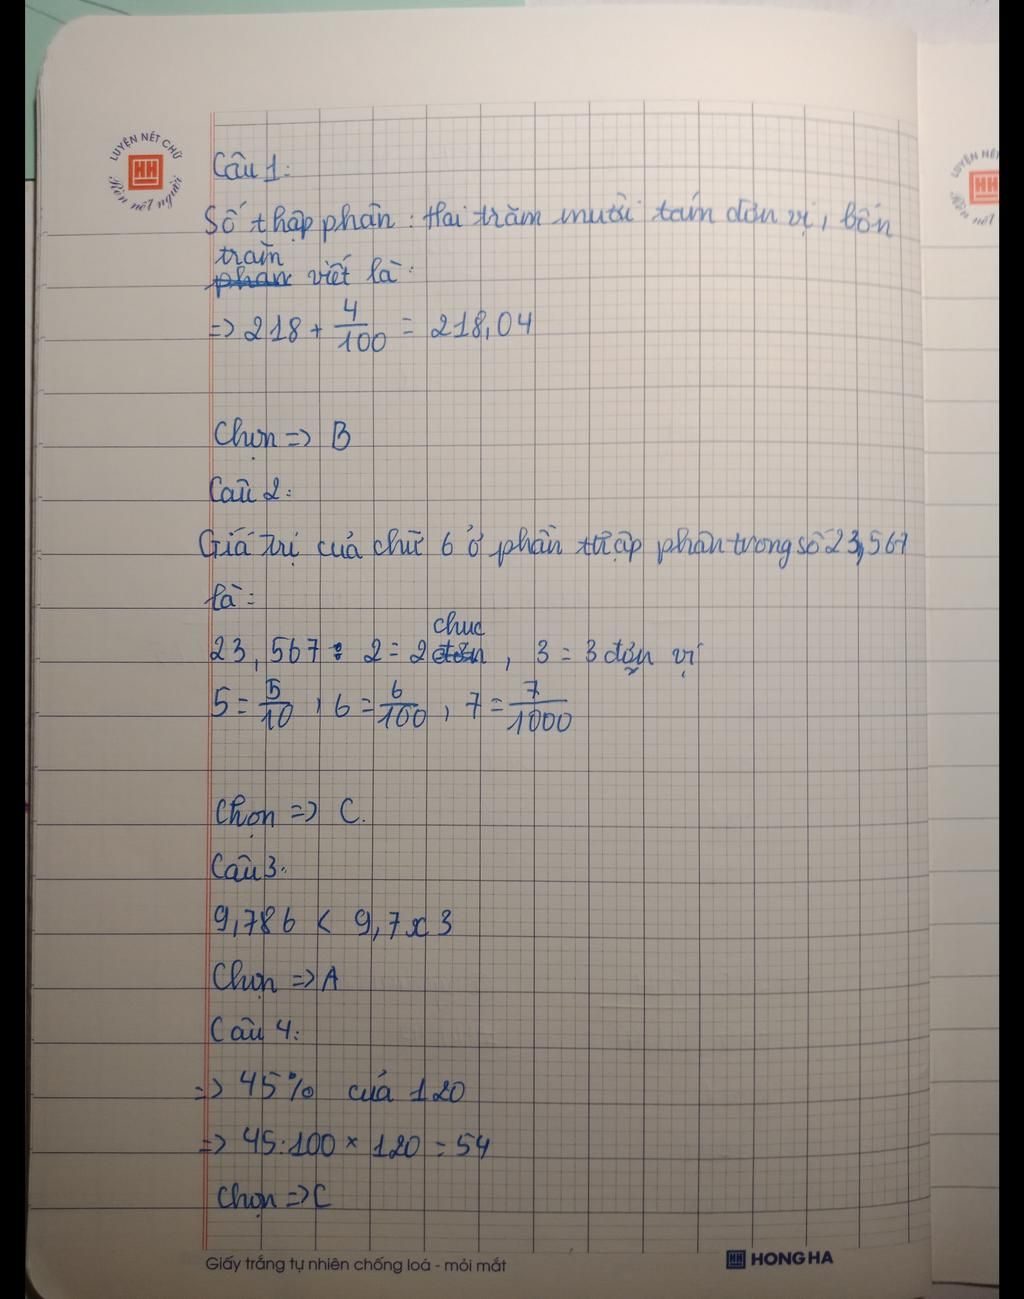 LUYỆN NẾT CHỮ
HH
Rèn nết người
LUYỆN NẾT
HH
Rèn nết
Câu 1:
Số thập phân : Hai trăm mười tám đơn vị, bốn
trăm
phần viết là :
=> 218 + 4/100 = 218,04
Chọn => B
Câu 2:
Giá trị của chữ 6 ở phần thập phân trong số 23,567
là :
chuc
23,567 : 2 = 2 đơn, 3 = 3 đơn vị
5 = 5/10, 6 = 6/100, 7 = 7/1000
Chọn => C.
Câu 3.
9,786 < 9,7x3
Chọn => A
Câu 4:
=> 45% của 120
=> 45:100 x 120 = 54
Chọn => C
Giấy trắng tự nhiên chống loá - mỏi mắt
HH HONG HA